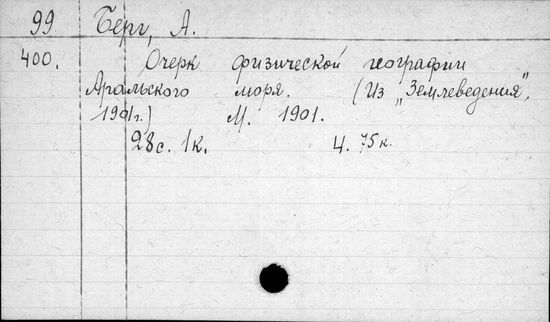 99 Берг, А.
400. Очерк физической географии
Аральского моря. (Из „Землеведения",
1901г.) М. 1901.
28с. 1к. Ц. 75к.